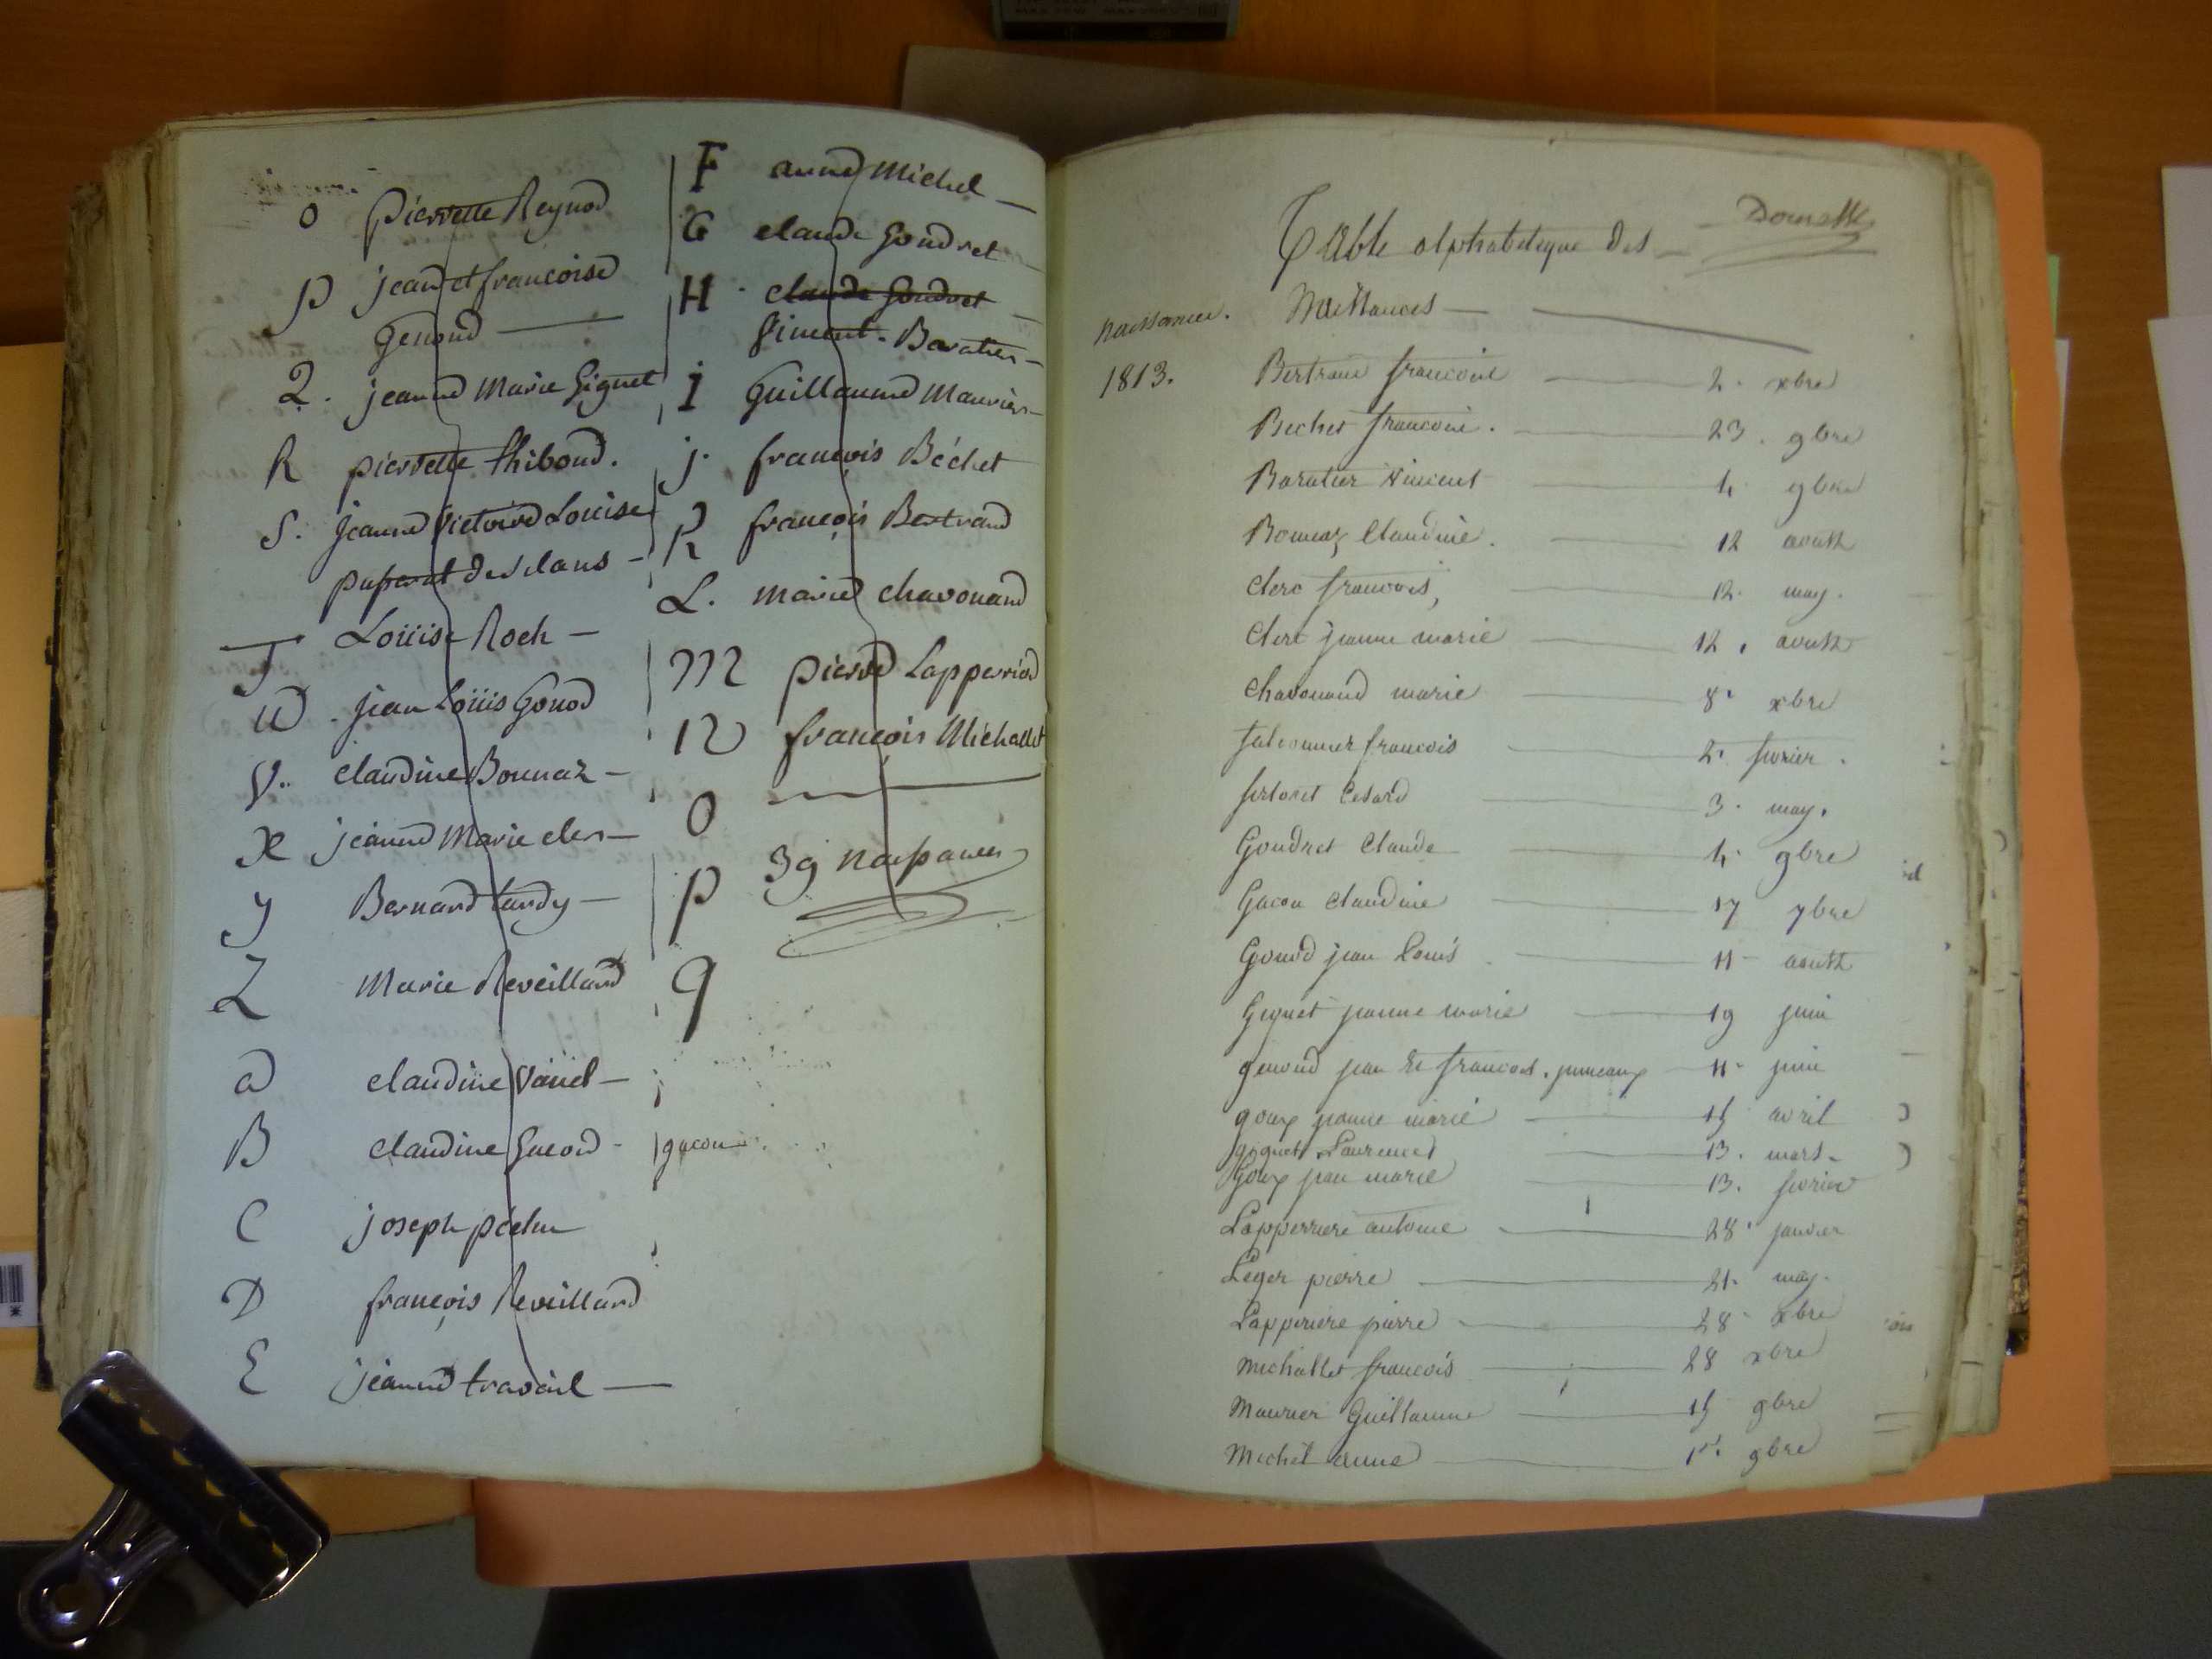 O pierrette Reynod
P jean et francoise
genoud
Q. jeanne Marie Gignet
R pierrette thiboud.
S. jeanne Victoire Louise
paparat desclaus
T Louise Roch
U jean Louis Gonod
V. claudine Bonnaz
X jeanne Marie cler
y Bernard tardy
Z Marie Reveillard
a claudine Vauel
B claudine Gacon gacon
C joseph péchu
D françois Reveillard
E jeanne travail
F anne Michel
G claude Goudret
H claude Goudret
Vincent Baratier
I Guillaume Maurier
j. françois Béchet
K françois Bertrand
L. marie chavouand
M pierre Lapperrier
N françois Michallet
O
P 39 naissances
q
Table alphabetique des Domsure
naissances. Naissances
1813. Bertrand francois 2. xbre
Bechet francois. 23. 9bre
Baratier vincent 4 9bre
Bonnaz Claudine. 12 aoust
Clerc francois, 12. may.
Clerc jeanne marie 12. aoust
Chavouand marie 8. xbre
falconnier francois 2. fevrier.
Cesard 3. may.
Goudret Claude 4. 9bre
Gacon Claudine 17 7bre
Gonod jean Louis 11 aoust
Gignet jeanne marie 19 juin
genoud jean et francoise. jumeaux 11. juin
goux jeanne marie 15 avril
gignet Laurence 13. mars
Goux jean marie 13. fevrier
Lapperriere antoine 28. janvier
Leger pierre 21. may.
Lapperiere pierre 28 xbre
Michallet francois 28 xbre
Maurier Guillaume 15 9bre
Michel anne 1er. 9bre